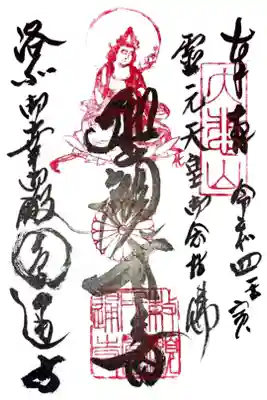 奉拝 令和四壬寅
大悲山
靈元天皇御念持佛
聖観世音
洛北御幸御殿 圓通寺